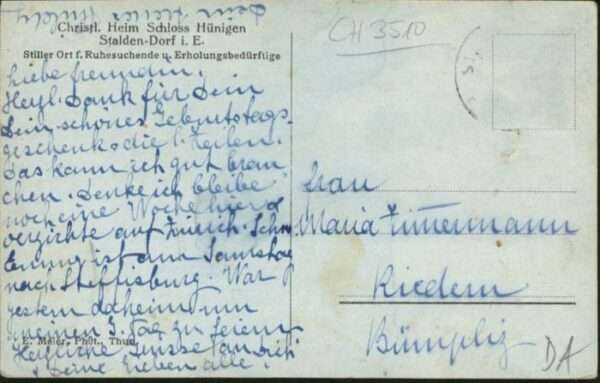 Christl. Heim Schloss Hünigen
Stalden-Dorf i. E.
Stiller Ort f. Ruhesuchende u. Erholungsbedürftige
CH 3510
Liebe Freundin,
Herzl. Dank für Dein
Dein schönes Geburtstags-
geschenk & die l. Zeilen.
Das kann ich gut brau
chen. Denke ich bleibe
noch eine Woche hier &
verzichte auf Zürich.
ist am Samstag
nach Steffisburg. War
gestern daheim um
meinen J. Tag zu feiern
Herzliche Grüsse an Dich
& Deine Lieben alle!
Frau
Maria Zimmermann
Riedern
Bümpliz
E. Meier, Phot., Thun
DA